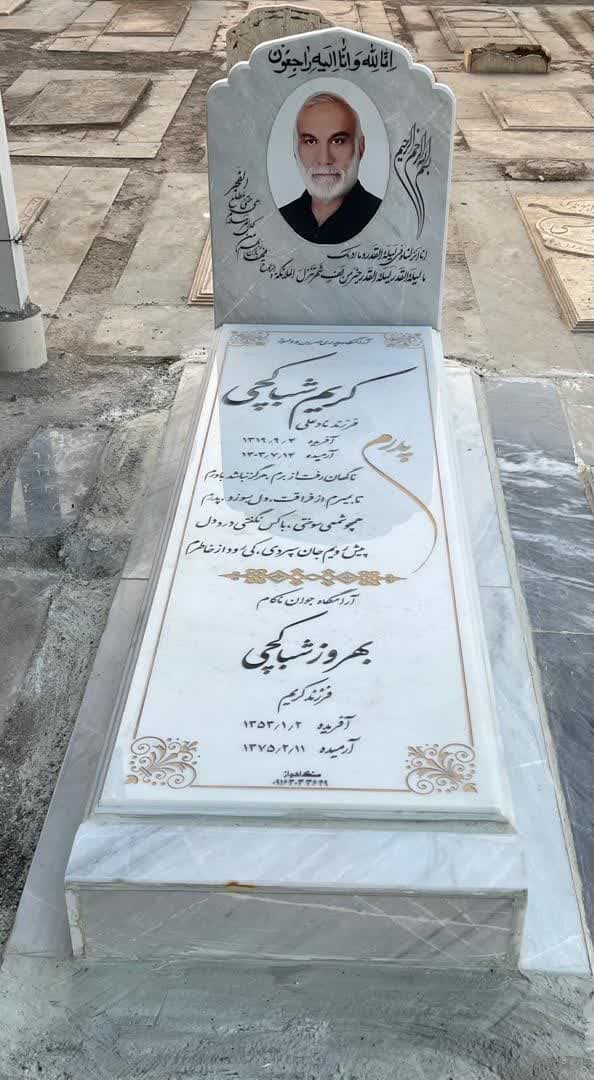 انا لله وانا الیه راجعون
بسم الله الرحمن الرحیم
انا انزلناه فی لیلة القدر وما ادریک
ما لیلة القدر لیلة القدر خیر من الف شهر تنزل الملائکة والروح
هی حتی مطلع
الفجر
آرامگاه پدری مهربان و دلسوز
کریم شباکچی
فرزند نادعلی
آفریده ۱۳۱۹/۹/۲
آرمیده ۱۴۰۳/۷/۱۳
پدرم
ناگهان رفت از برم، هرگز نباشد باورم
تا بمیرم از فراقت، دل بسوزد، پدرم
همچو شمعی سوختی، با کس نگفتی درد دل
پیش رویم جان سپردی، کی رود از خاطرم
آرامگاه جوان ناکام
بهروز شباکچی
فرزند کریم
آفریده ۱۳۵۳/۱/۲
آرمیده ۱۳۷۵/۲/۱۱
سنگ اهواز